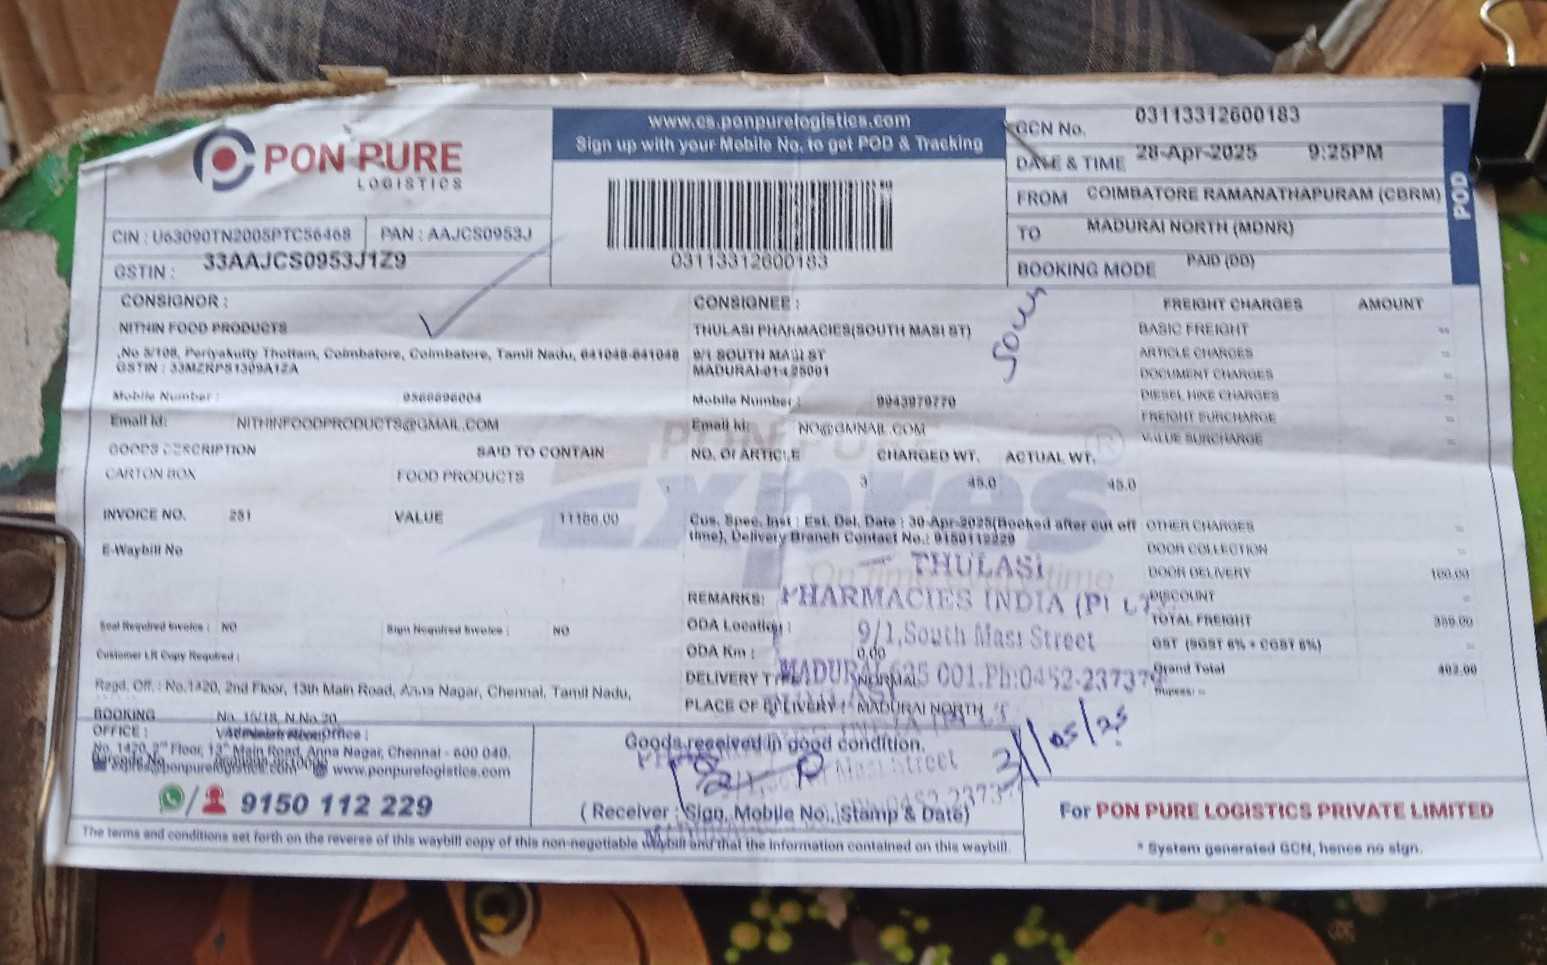 PON PURE
LOGISTICS
www.cs.ponpurelogistics.com
Sign up with your Mobile No. to get POD & Tracking
03113312600183
GCN No. 03113312600183
DATE & TIME 28-Apr-2025 9:25PM
FROM COIMBATORE RAMANATHAPURAM (CBRM)
TO MADURAI NORTH (MDNR)
BOOKING MODE PAID (DD)
POD
CIN : U63090TN2005PTC56468 PAN : AAJCS0953J
GSTIN : 33AAJCS0953J1Z9
CONSIGNOR :
NITHIN FOOD PRODUCTS
,No 5/108, Periyakutty Thottam, Coimbatore, Coimbatore, Tamil Nadu, 641048-641048
GSTIN : 33MZRPS1309A1ZA
Mobile Number : 9566696004
Email Id: NITHINFOODPRODUCTS@GMAIL.COM
CONSIGNEE :
THULASI PHARMACIES(SOUTH MASI ST)
9/1 SOUTH MASI ST
MADURAI-01
Mobile Number : 9943979770
Email Id: NO@GMNAIL.COM
South
FREIGHT CHARGES AMOUNT
BASIC FREIGHT
ARTICLE CHARGES
DOCUMENT CHARGES
DIESEL HIKE CHARGES
FREIGHT SURCHARGE
VALUE SURCHARGE
GOODS DESCRIPTION SAID TO CONTAIN
CARTON BOX FOOD PRODUCTS
NO. OF ARTICLE CHARGED WT. ACTUAL WT.
3 45.0 45.0
PON PURE
Express
On time
time
INVOICE NO. 251 VALUE 11186.00
E-Waybill No
Cus. Spec. Inst : Est. Del. Date : 30-Apr-2025(Booked after cut off
time), Delivery Branch Contact No.: 9150112229
OTHER CHARGES
DOOR COLLECTION
DOOR DELIVERY 160.00
DISCOUNT
TOTAL FREIGHT 389.00
GST (SGST 6% + CGST 6%)
Grand Total 402.00
Rupees: --
REMARKS:
ODA Location :
ODA Km : 0.00
DELIVERY TYPE NORMAL
PLACE OF DELIVERY : MADURAI NORTH
THULASI
PHARMACIES INDIA (P) LT
9/1, South Masi Street
MADURAI-625 001.Ph:0452-23737
Seal Required Invoice : NO Sign Required Invoice : NO
Customer LR Copy Required :
Regd. Off. : No.1420, 2nd Floor, 13th Main Road, Anna Nagar, Chennai, Tamil Nadu,
BOOKING
OFFICE :
No. 15/18, N.No.20,
No. 1420, 2nd Floor, 13th Main Road, Anna Nagar, Chennai - 600 040.
www.ponpurelogistics.com
9150 112 229
Goods received in good condition.
Masi Street
2/05/25
( Receiver : Sign, Mobile No., Stamp & Date)
For PON PURE LOGISTICS PRIVATE LIMITED
* System generated GCN, hence no sign.
The terms and conditions set forth on the reverse of this waybill copy of this non-negotiable waybill and that the information contained on this waybill.